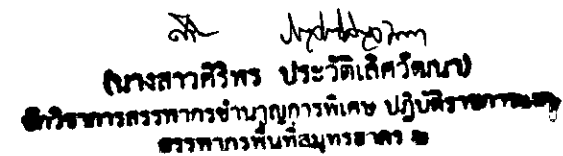 (นางสาวศิริพร ประวัติเลิศวัฒนา)
นักวิชาการสรรพากรชำนาญการพิเศษ ปฏิบัติราชการแทน
สรรพากรพื้นที่สมุทรสาคร ๒